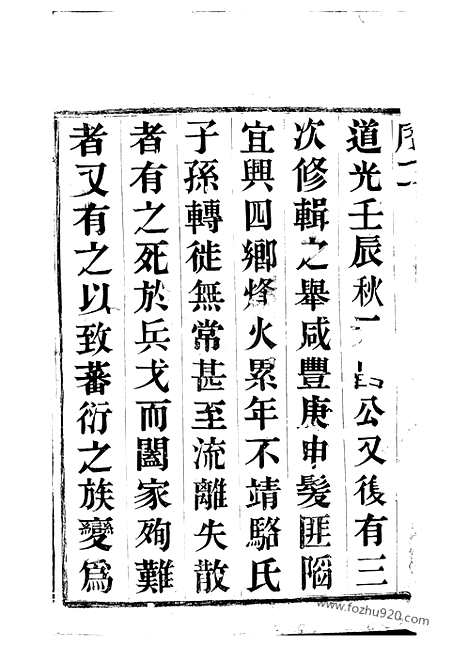 序
道光壬辰秋公又後有三
次修輯之舉咸豐庚申髮匪陷
宜興四鄉烽火累年不靖駱氏
子孫轉徙無常甚至流離失散
者有之死於兵戈而闔家殉難
者又有之以致蕃衍之族變爲
www.fozhu920.com